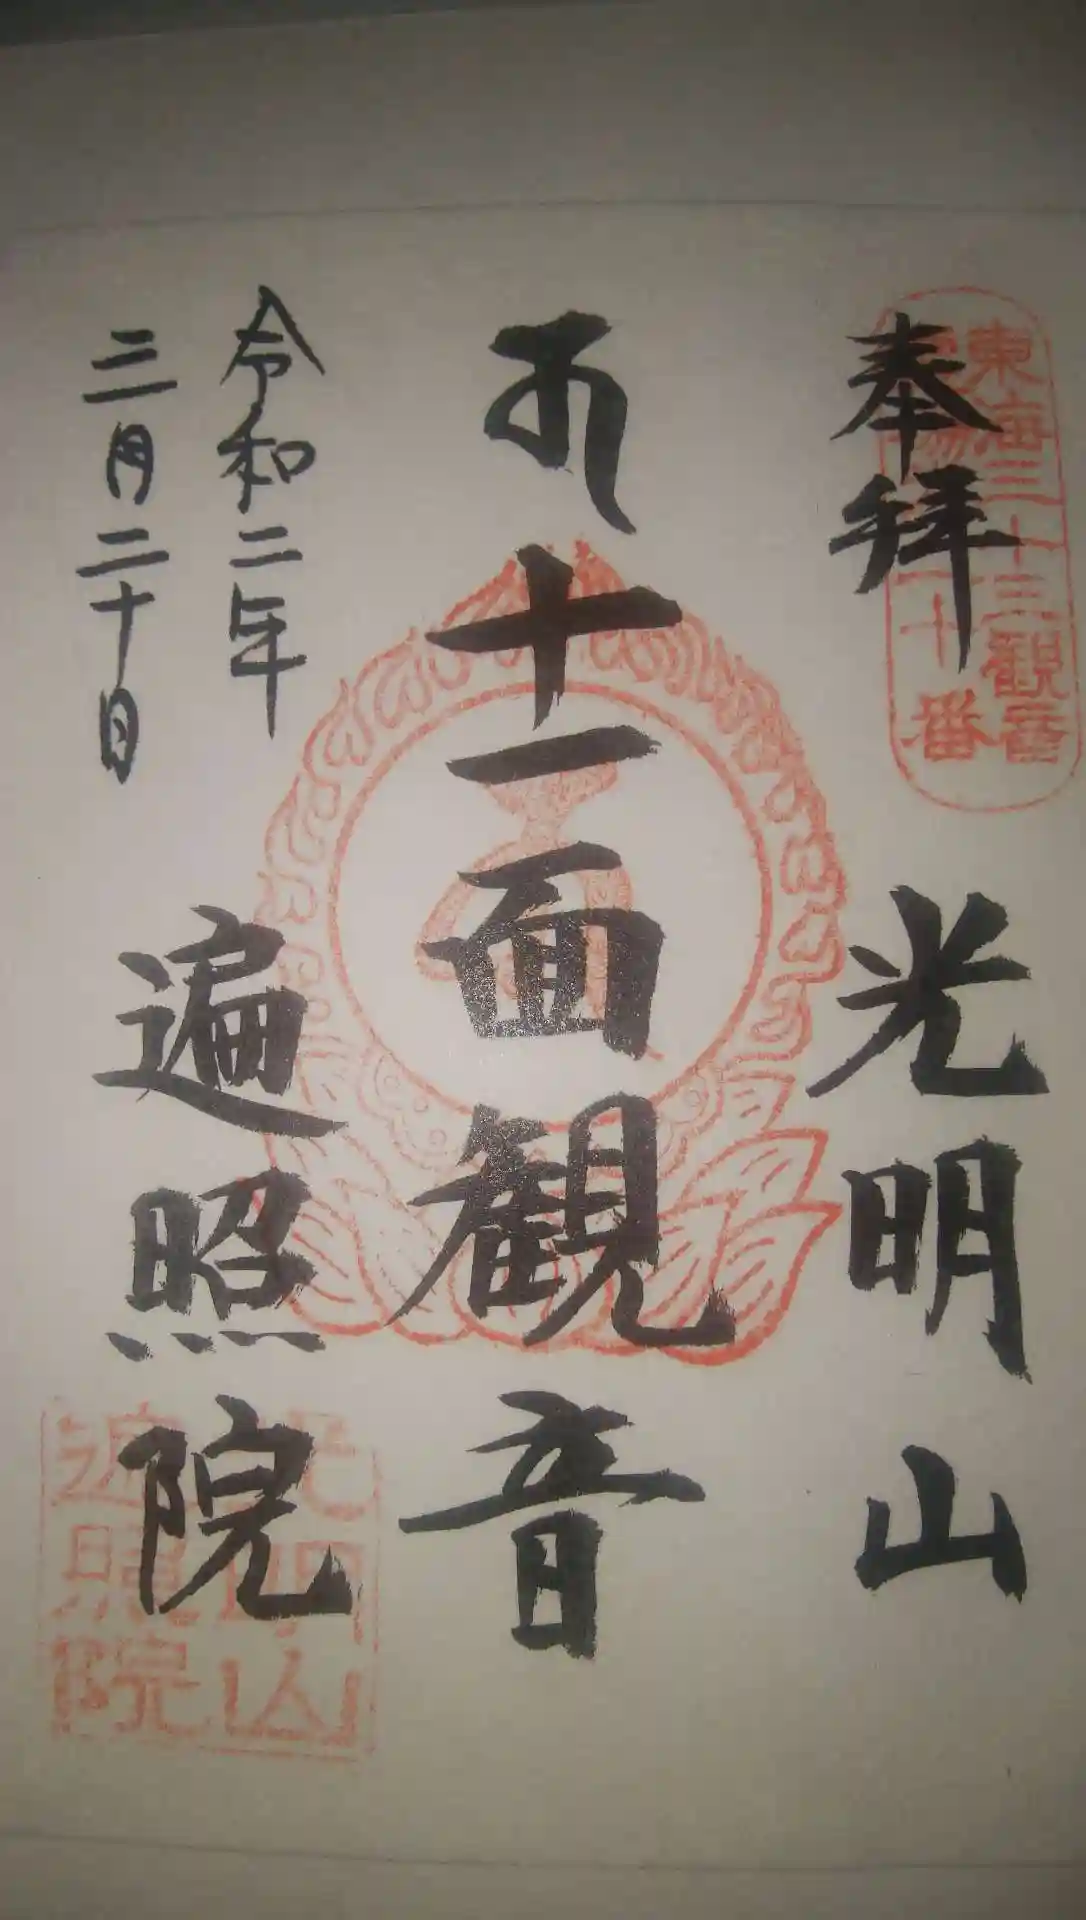 東海三十三観音
十番
奉拝
光明山
十一面観音
令和二年
三月二十日
遍照院
光明山
遍照院